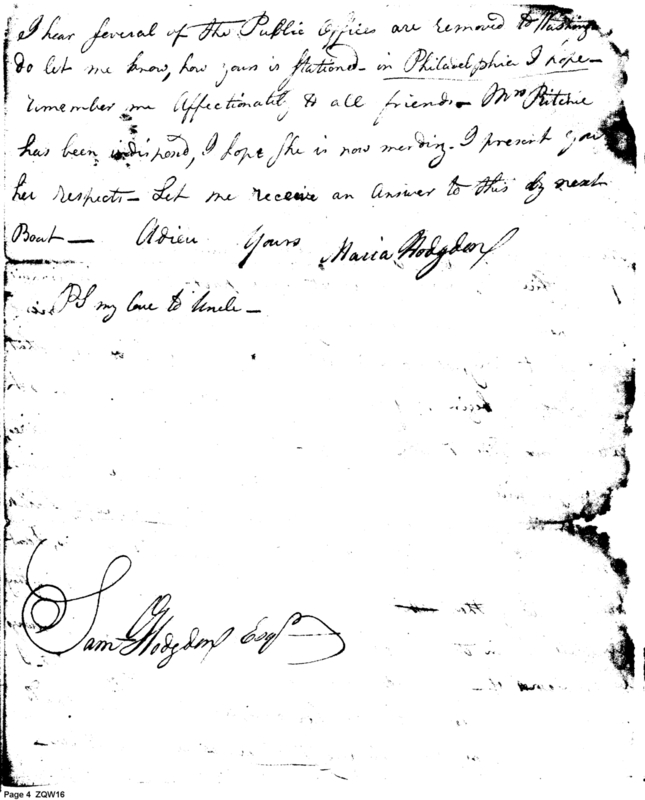 I hear several of the Public Offices are removed to Washing
do let me know, how yours is stationed - in Philadelphia I hope -
remember me Affectionately to all friends - Mrs Ritchie
has been indisposed, I hope she is now mending - I present you
her respects - Let me receive an Answer to this by next
Boat - Adieu Yours Maria Hodgdon
PS my love to Uncle -
Sam Hodgdon Esqr
Page 4 ZQW16